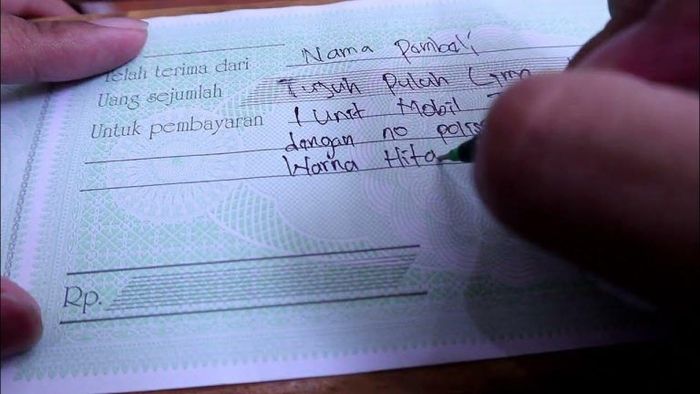 Telah terima dari Nama Pembeli
Uang sejumlah Tujuh Puluh
Untuk pembayaran 1 Unit Mobil
dengan no polis
Warna Hita
Rp.